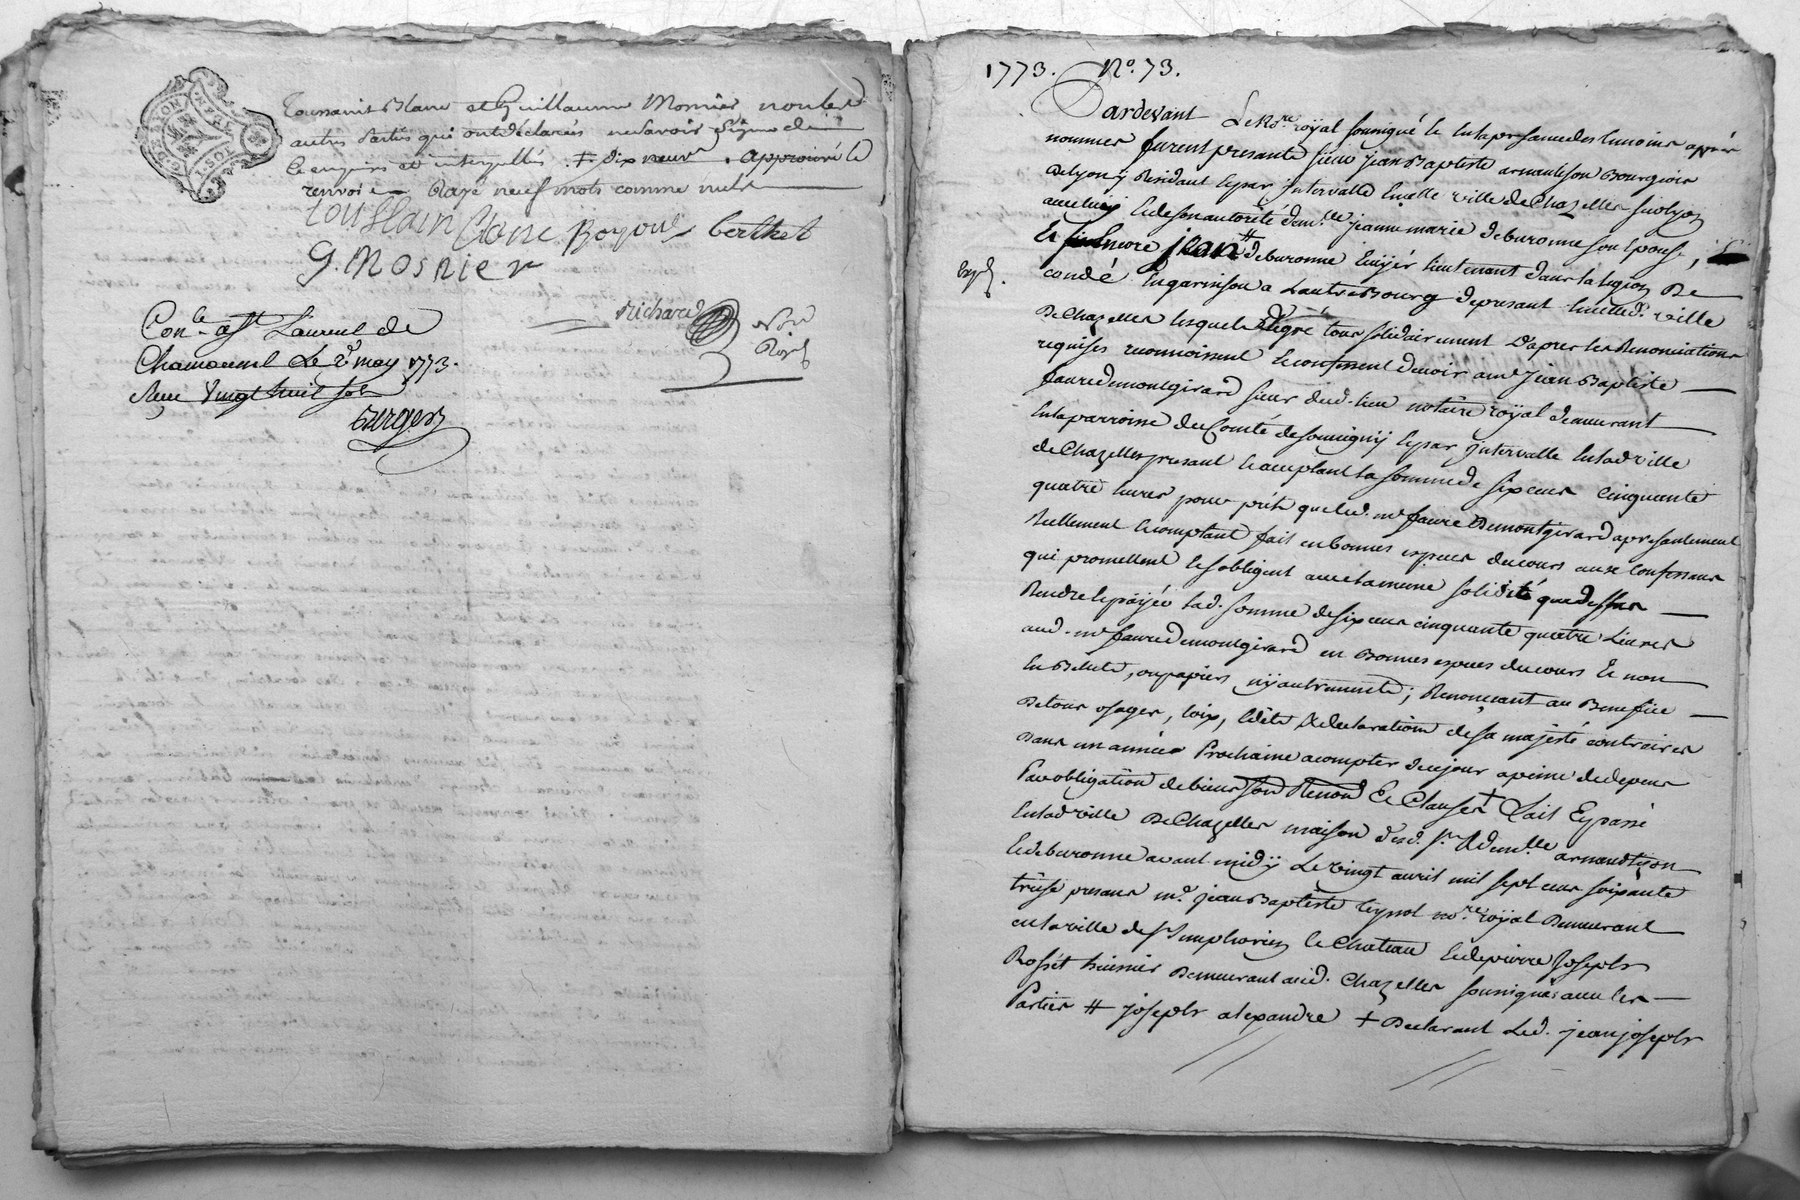 Toussaint Blanc et Guillaume Mosnier non les
autres parties qui ont déclarés ne savoir signer de
ce enquis et interpellés. + dix neuf. approuvé le
renvoi. Rayé neuf mots comme nuls
toussain blanc Boyou berthet
G. Mosnier
Richard
Nore
Royal
Conle. à St Laurent de
Chamousset Le 2 may 1773.
Reçu vingt huit sols
Burgers
1773. No. 73.
Pardevant Le Nore. royal soussigné et en la presence des temoins aprés
nommés furent presants sieur jean Baptiste arnaulison Bourgeois
de Lyon y Residant et par intervalle en cette ville de Chazelles sur Lyon
avec luy et de son autorité demlle. jeanne marie deburonne son epouse,
Et encore jean # deburonne Ecuyér lieutenant dans la legion De
Expd.
condé En garnison a Lauterbourg de present en cette d. ville
De Chazelles lesquels de gré tous solidairement D'apres les Renonciations
requises reconnoissent et confessent devoir a me jean Baptiste
faure de montgirard sieur dud. lieu notaire royal demeurant
en la parroisse du Comté de Souvigny et par intervalle en lad ville
de Chazelles presant et acceptant la somme de six cens cinquante
quatre livres pour prêt que led. me faure Demontgirard a presentement
Reellement et comptant fait en bonnes especes du cours aux Confessans
qui promettent et s'obligent avec la meme solidité que dessus
Rendre et payér lad. somme de six cens cinquante quatre Livres
aud. me faure de montgirard en Bonnes especes du cours Et non
en Billets, ou papiers ny autrement; Renonçant au Benefice
De tous usages, loix, Edits & declarations de sa majesté contraires
Dans un année Prochaine a compter de ce jour a peine de depens
Par obligation de biens Sou Renon Et Clauses + fait Et passé
en lad ville De Chazelles maison desd. sr. & demlle. arnaudtizon
et deburonne avant midy Le vingt avril mil sept cens soixante
treise presans me. jean Baptiste Eynot nore. royal Demeurant
en la ville de st simphorien le Chateau et de pierre Joseph
Rosset huissier Demeurant aud. Chazelles soussignés avec les
Parties # joseph alexandre + Declarant Led. jean joseph